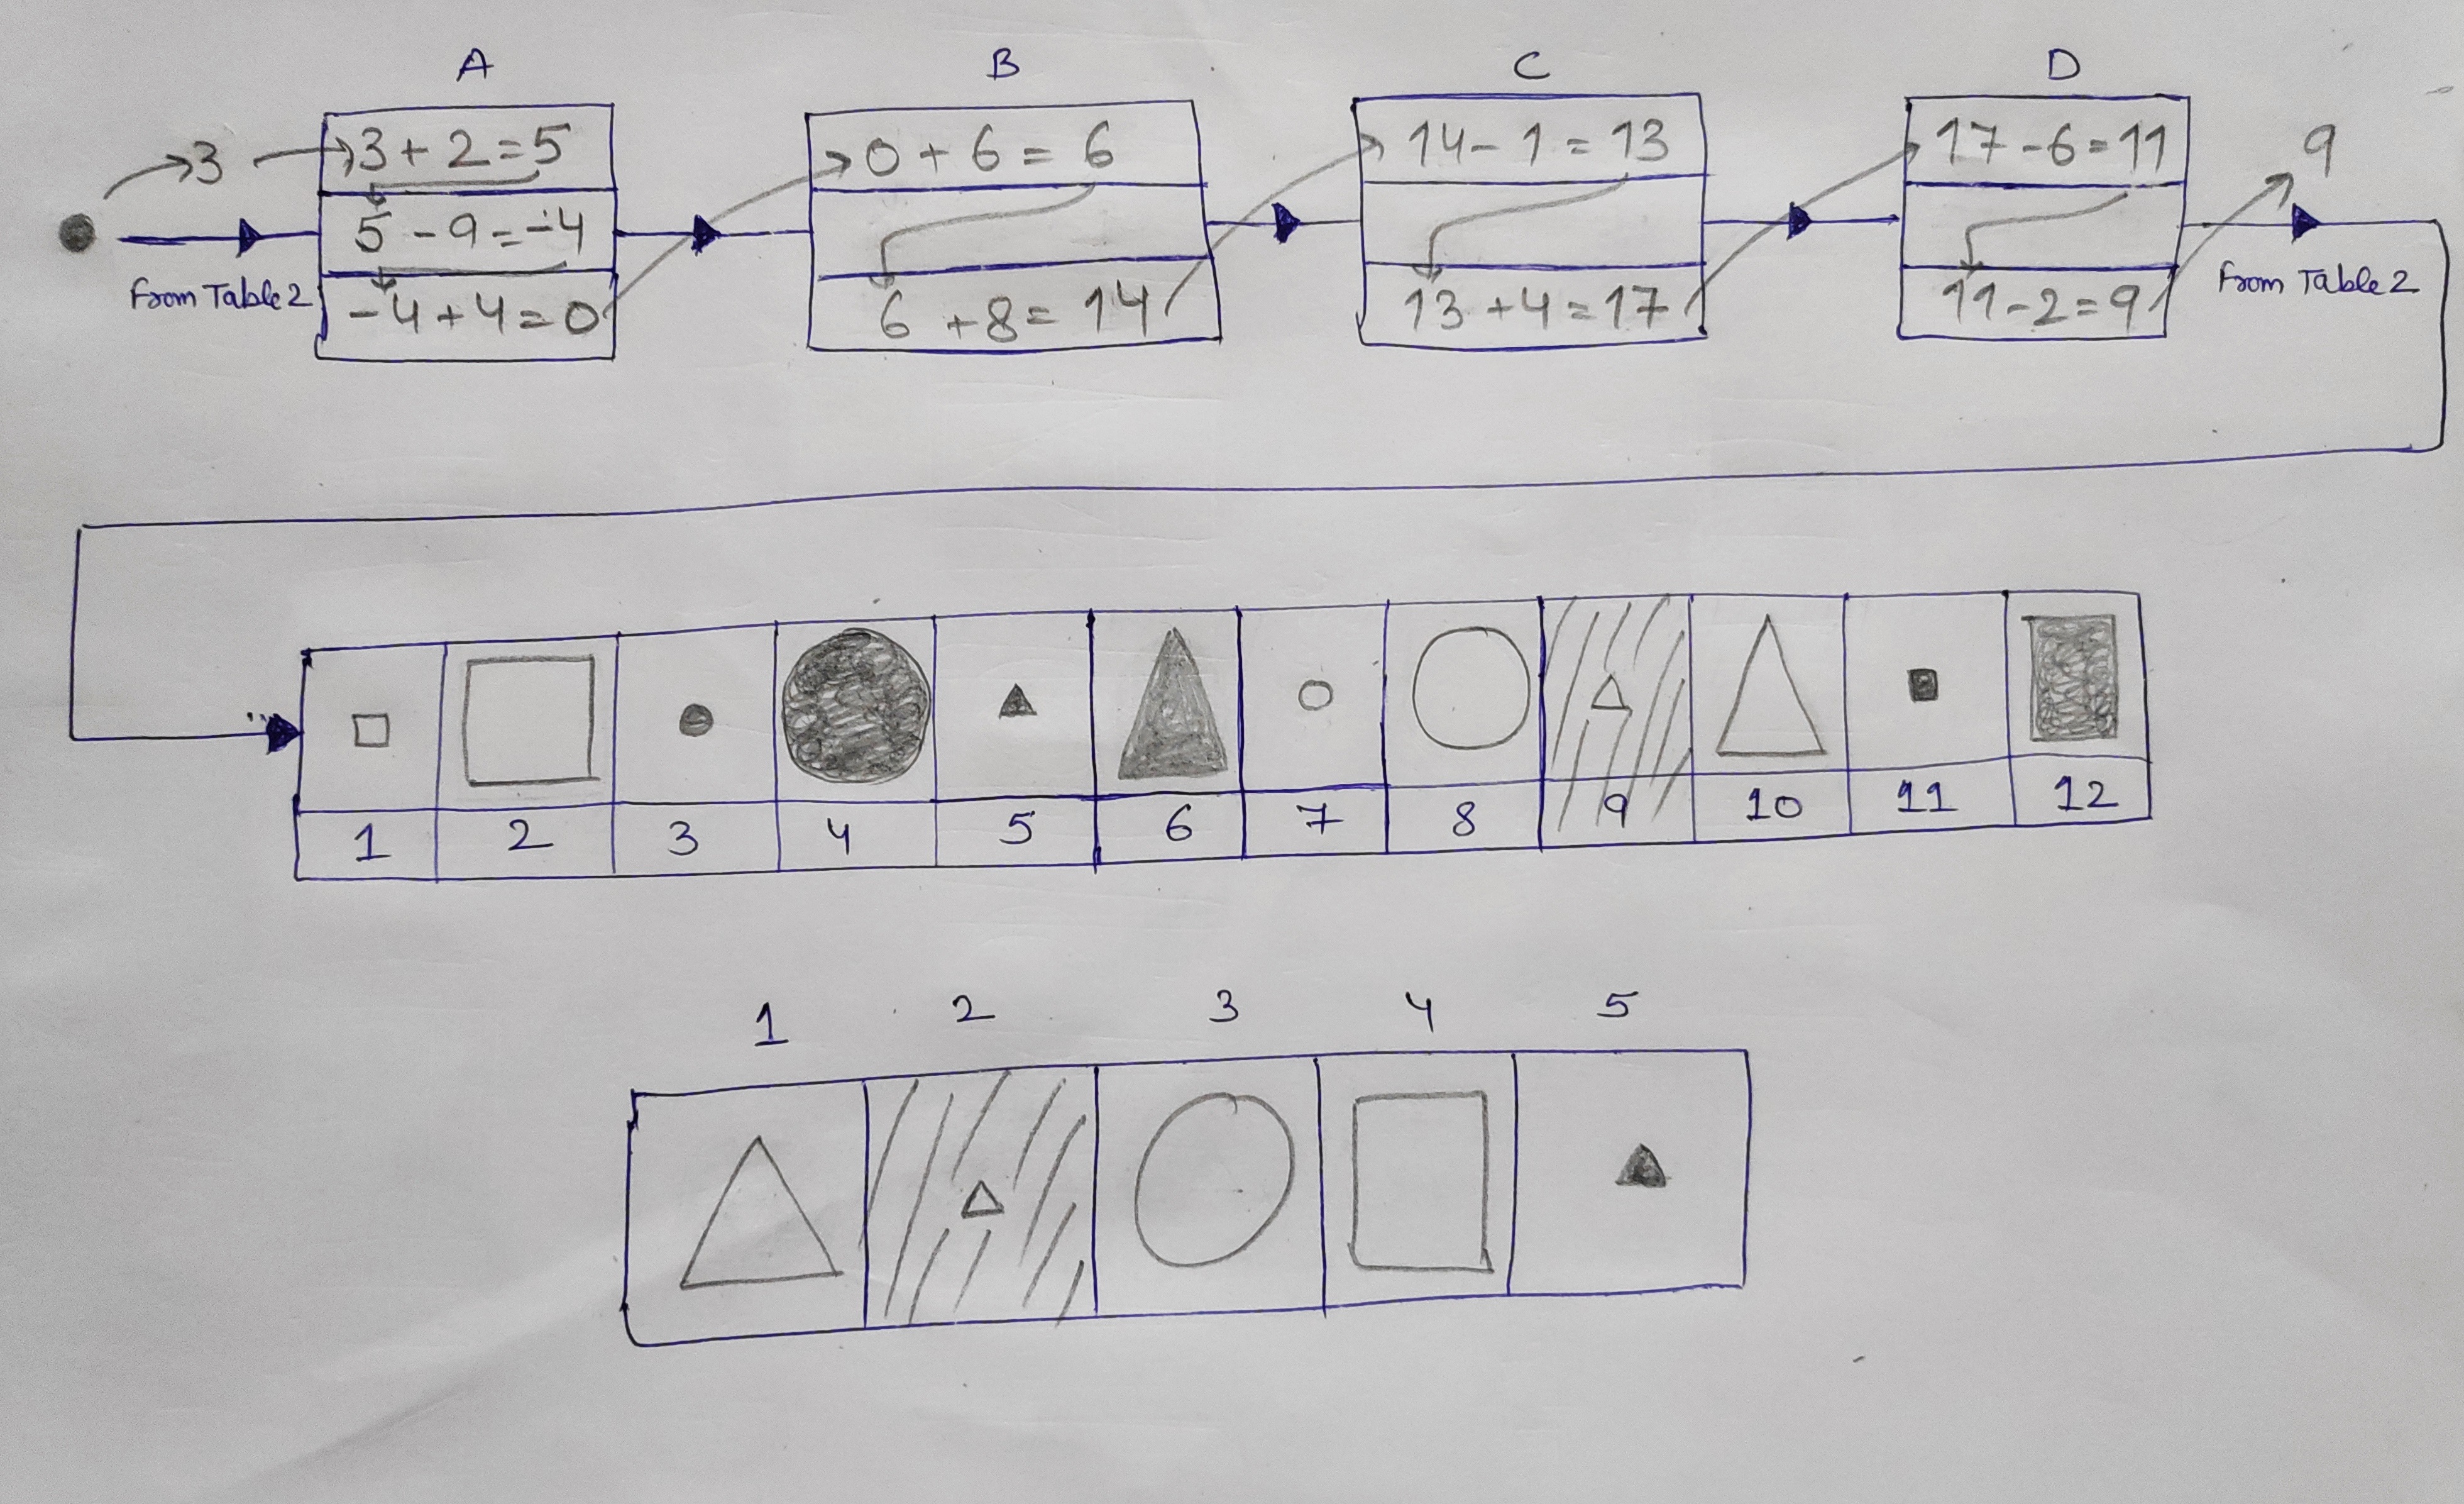 A B C D
3 3+2=5 0+6=6 14-1=13 17-6=11 9
5-9=-4
From Table 2 -4+4=0 6+8=14 13+4=17 11-2=9 From Table 2
1 2 3 4 5 6 7 8 9 10 11 12
1 2 3 4 5